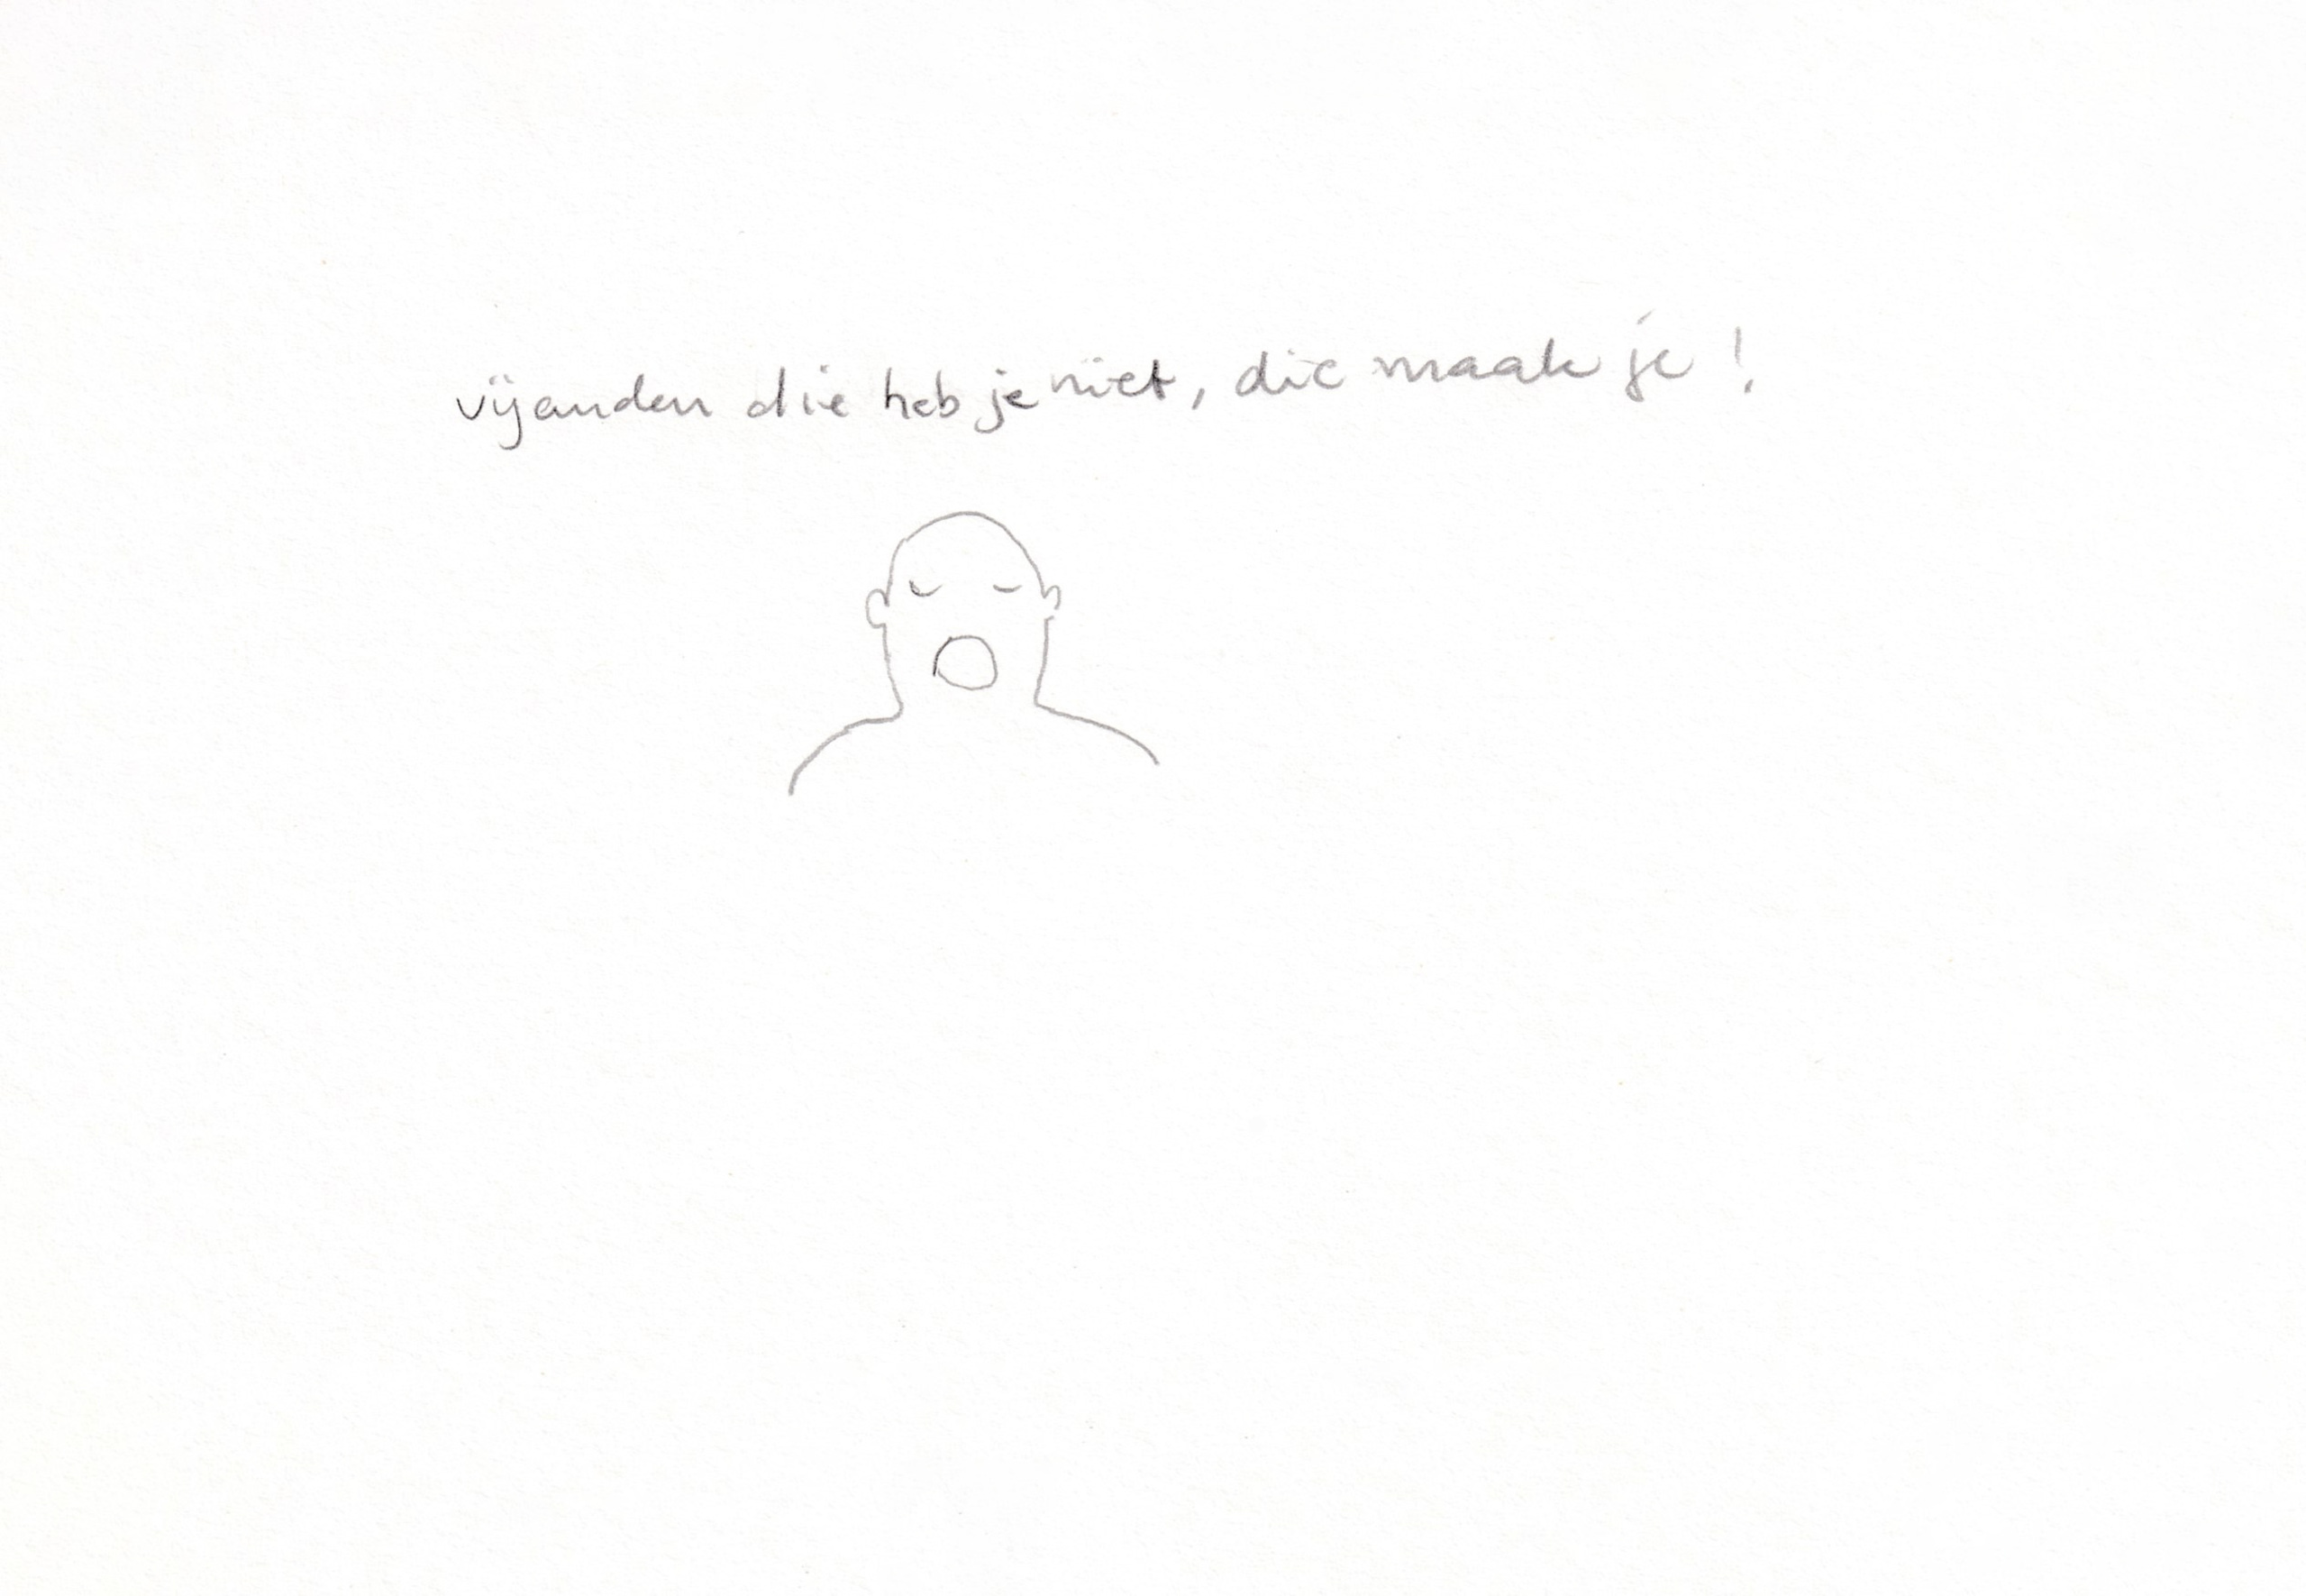 vijanden die heb je niet, die maak je !